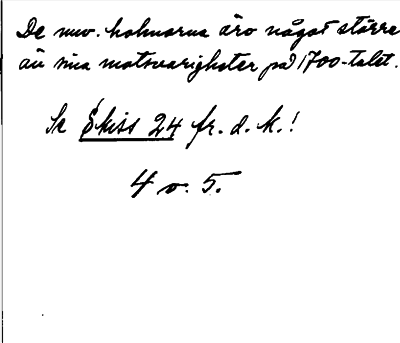 De nuv. holmarna äro något större
än sina motsvarigheter på 1700-talet.
Se Skiss 24 fr. d. K.!
4 o. 5.